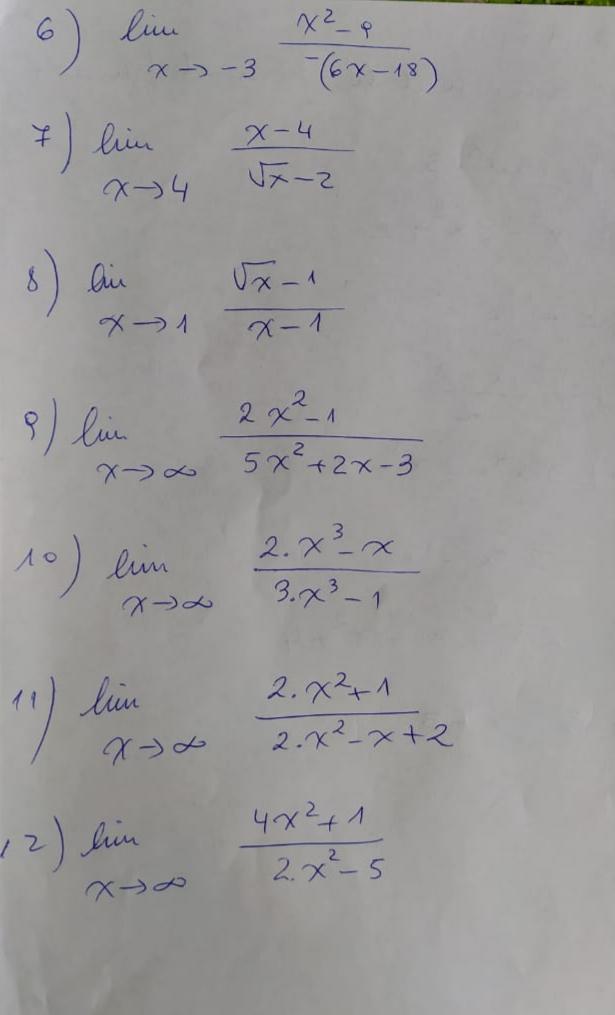 6) lim x→-3 (x² - 9) / (-(6x-18))
7) lim x→4 (x-4) / (√x-2)
8) lim x→1 (√x-1) / (x-1)
9) lim x→∞ (2x²-1) / (5x²+2x-3)
10) lim x→∞ (2.x³-x) / (3.x³-1)
11) lim x→∞ (2.x²+1) / (2.x²-x+2)
12) lim x→∞ (4x²+1) / (2.x²-5)